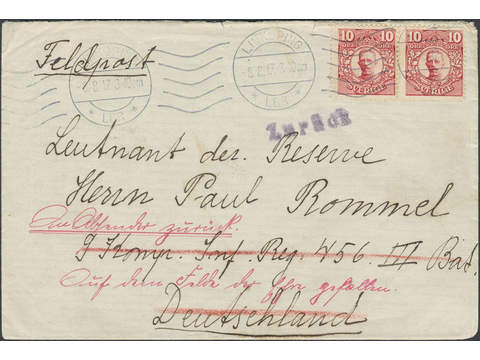 Feldpost
LINKÖPING
-5.2.17.3-10em
* LBR *
LINKÖPING
-5.2.17.3-10em
* LBR *
10 10
SVERIGE
10 10
SVERIGE
Zurück
Leutnant der Reserve
Herrn Paul Rommel
An Absender zurück.
9 Komp. Inf. Reg. 456. III Bat.
Auf dem Felde der Ehre gefallen.
Deutschland